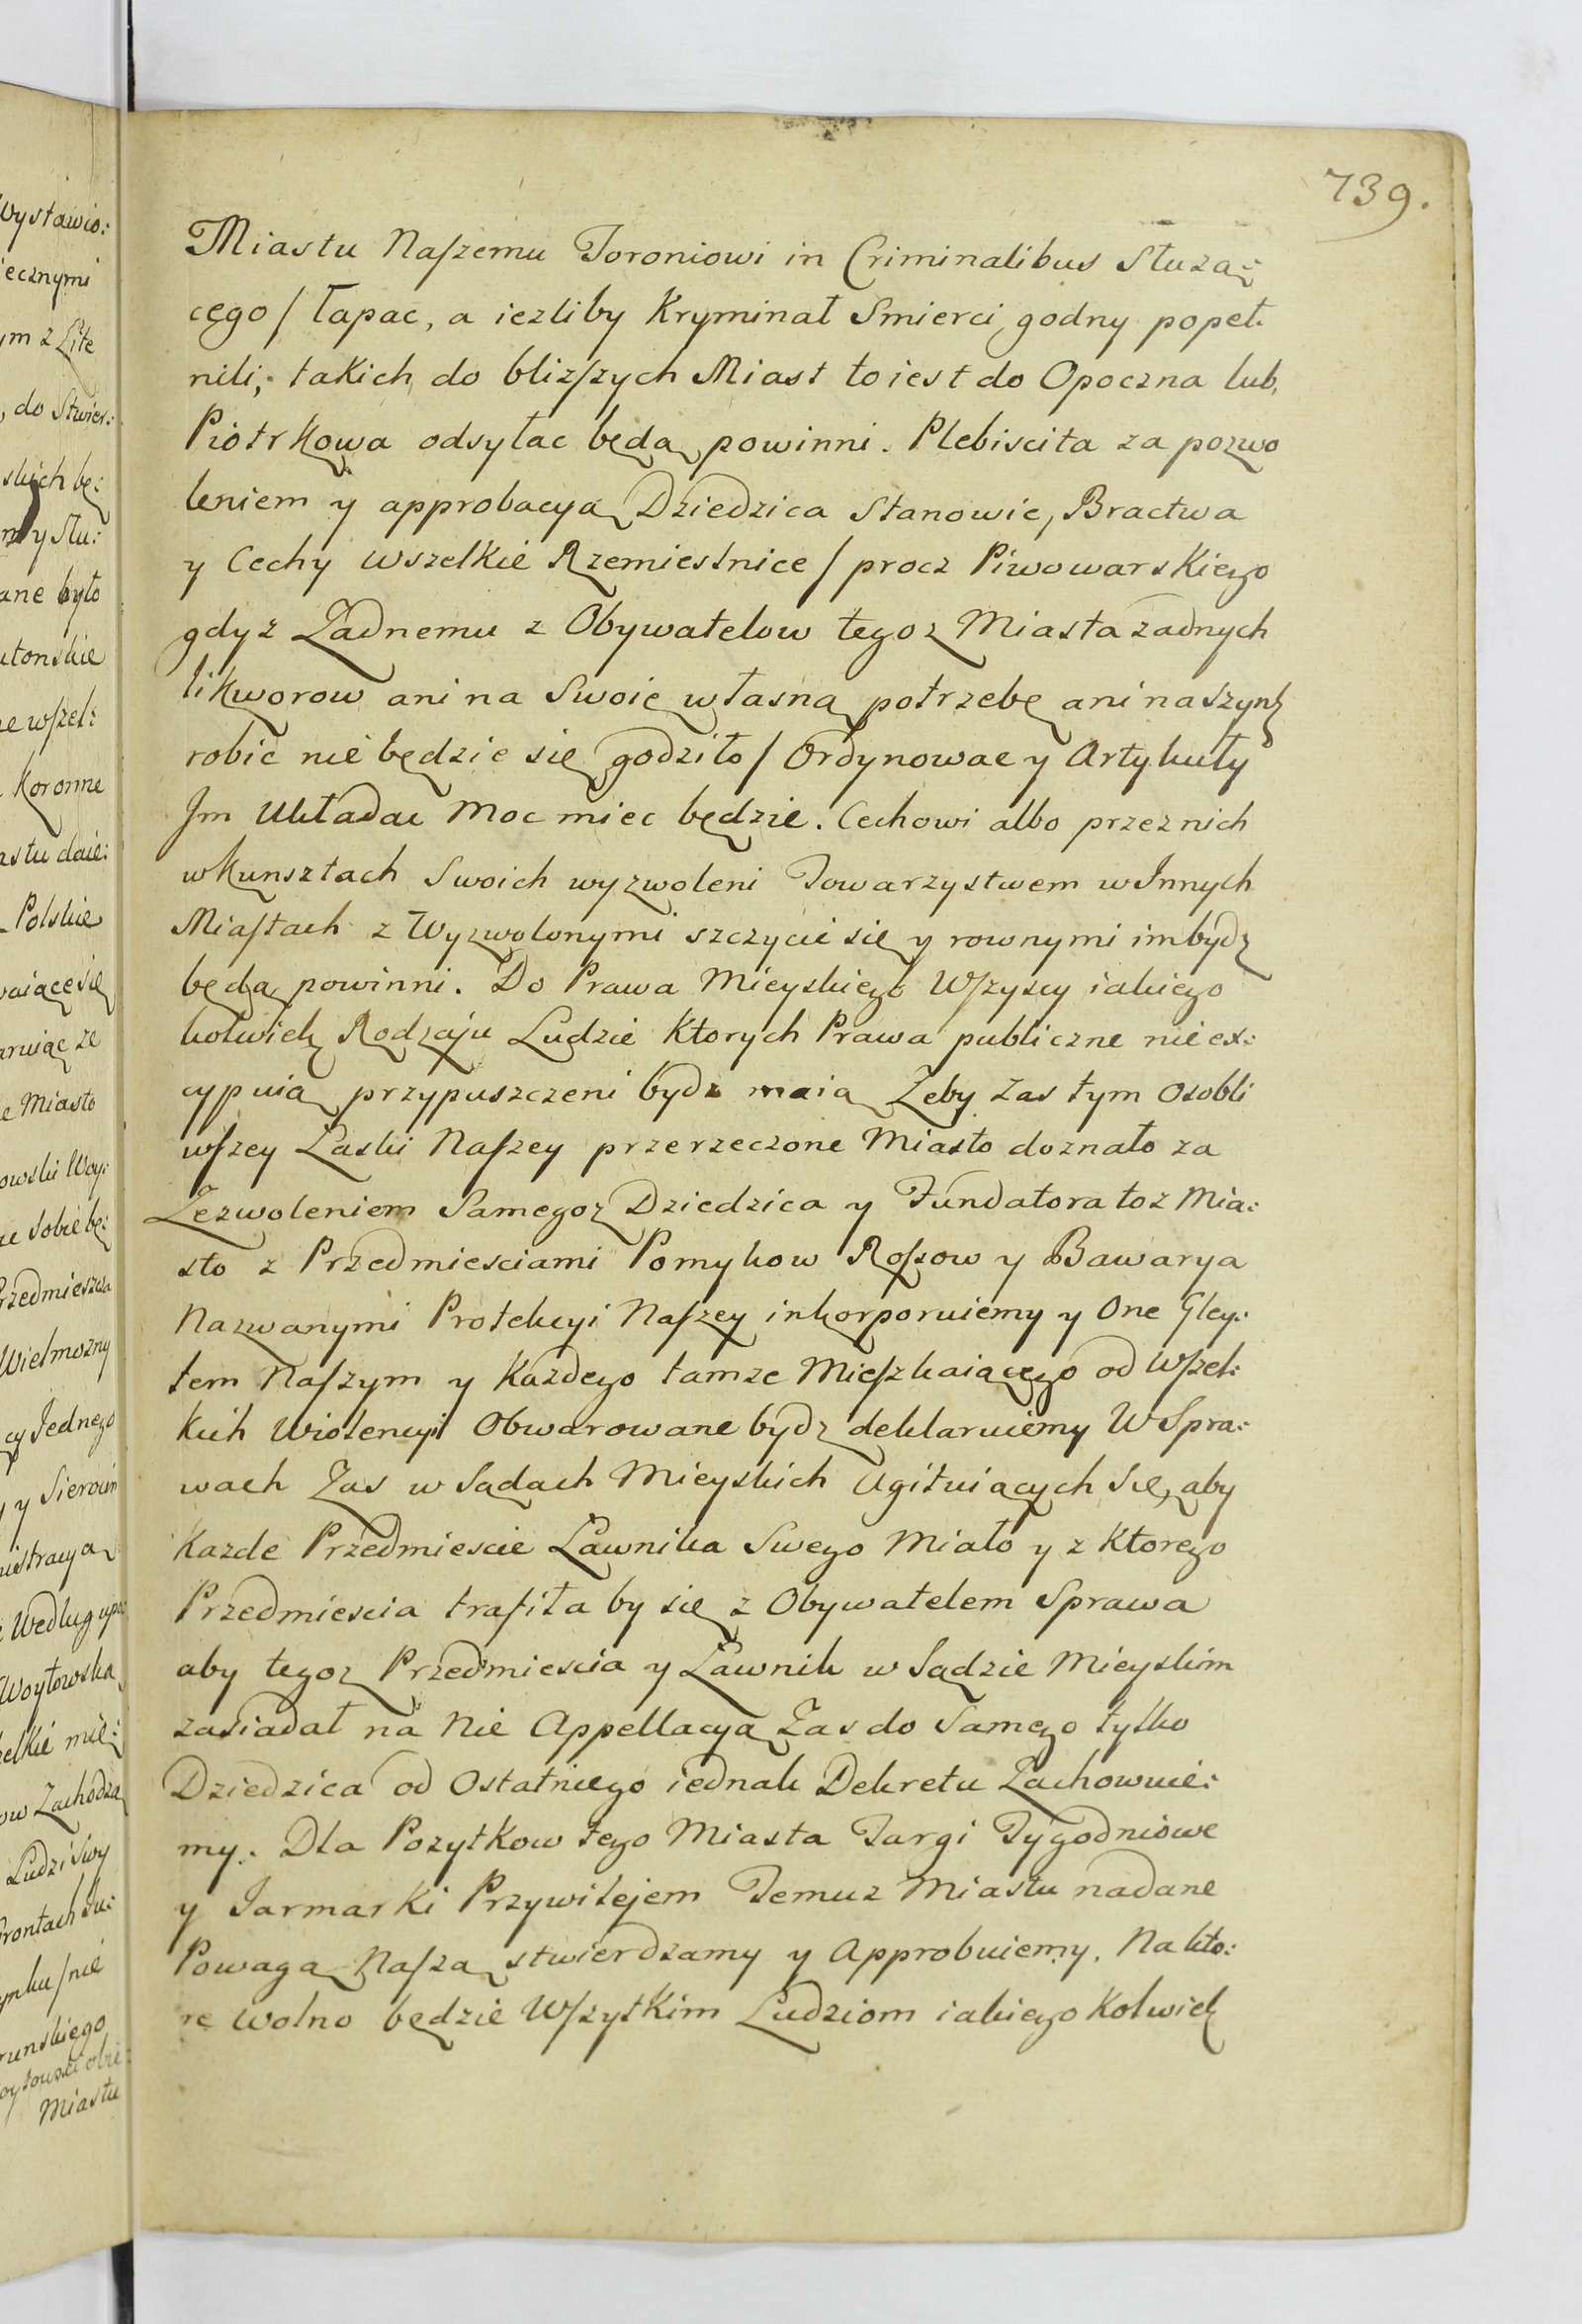 739.
Miastu Naszemu Toroniowi in Criminalibus Słuzą:
cego / łapac, a iezliby Kryminał Smierci godny popeł:
nili, takich do blizszych Miast to iest do Opoczna lub
Piotrkowa odsyłac będą powinni. Plebiscita za pozwo
leniem y approbacyą Dziedzica Stanowic, Bractwa
y Cechy wszelkie Rzemieslnice / procz Piwowarskiego
gdyz Zadnemu z Obywatelow tegoz Miasta zadnych
likworow ani na Swoię własną potrzebę ani na szynk
robic nie będzie się godziło / Ordynowac y Artykuły
Im Układac Moc miec będzie. Cechowi albo przez nich
w Kunsztach Swoich wyzwoleni Towarzystwem w Innych
Miastach z Wyzwolonymi szczycic się y rownymi im bydz
będą powinni. Do Prawa Mieyskiego Wszyscy iakiego
kolwiek Rodzaju Ludzie Ktorych Prawa publiczne nie ex:
cypuią przypuszczeni bydz maią Zeby zas tym Osobli
wszey Łaski Naszey przerzeczone Miasto doznało za
Zezwoleniem Samegoz Dziedzica y Fundatora toz Mia:
sto z Przedmiesciami Pomykow Rossow y Bawarya
Nazwanymi Protekcyi Naszey inkorporuiemy y One Gley:
tem Naszym y Kazdego tamze Mieszkaiącego od Wszel:
kich Wiolencyi Obwarowane bydz deklaruiemy W Spra:
wach Zas w Sądach Mieyskich Agituiących się, aby
Kazde Przedmiescie Ławnika Swego Miało y z Ktorego
Przedmiescia trafiła by się z Obywatelem Sprawa
aby tegoz Przedmiescia y Ławnik w Sądzie Mieyskim
zasiadał na Nie Appellacyą Zas do Samego tylko
Dziedzica od Ostatniego iednak Dekretu Zachowuie:
my. Dla Pozytkow tego Miasta Targi Tygodniowe
y Jarmarki Przywilejem Temuz Miastu nadane
Powagą Naszą stwierdzamy y Approbuiemy. Na kto:
re wolno będzie Wszytkim Ludziom iakiego Kolwiek